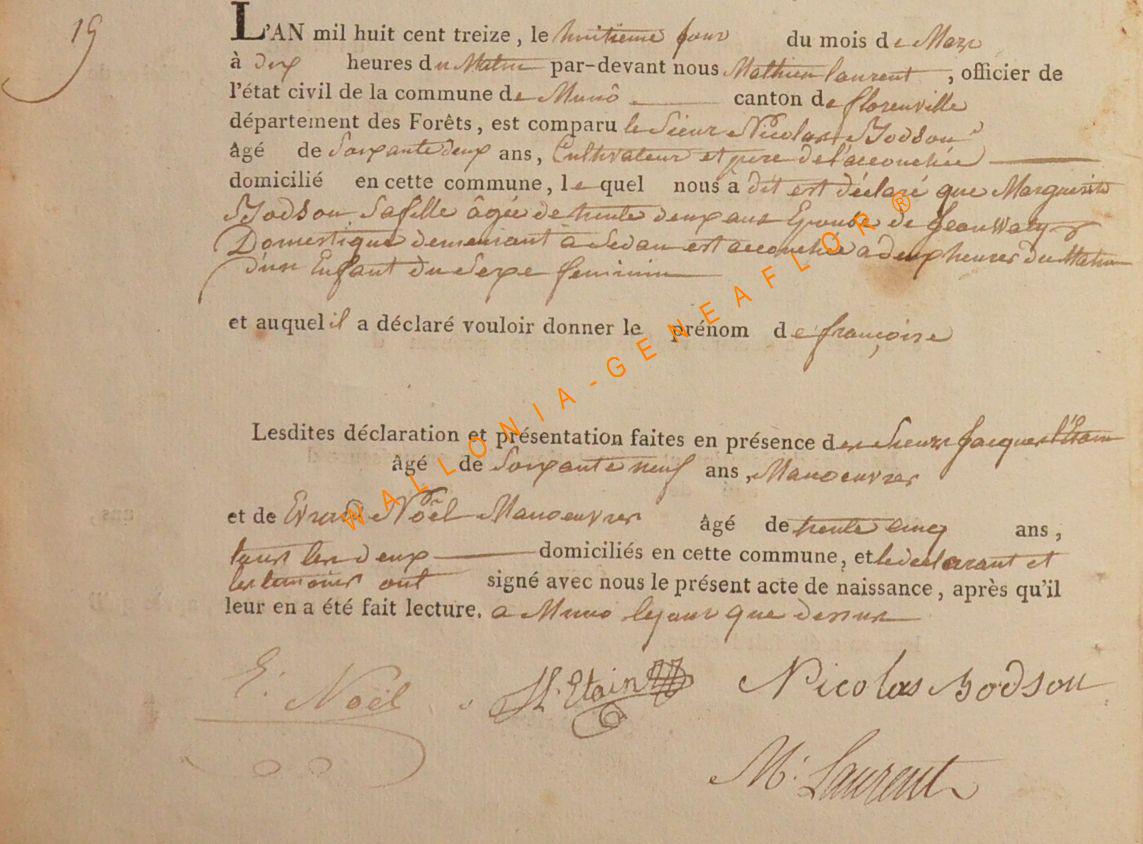 19
L'AN mil huit cent treize, le huitieme jour du mois de Mars
à dix heures du Matin par-devant nous Mathieu laurent, officier de
l'état civil de la commune de Munô canton de florenville
département des Forêts, est comparu le Sieur Nicolas Bodson
âgé de Soixante deux ans, Cultivateur et pere de l'accouchée
domicilié en cette commune, lequel nous a dit est déclaré que Marguerite
Bodson Sa fille âgée de trente deux ans Epouse de Jean Waty
Domestique demeurant à Sedan est accouchée a deux heures du Matin
d'un Enfant du Sexe feminin
et auquel il a déclaré vouloir donner le prénom de françoise
Lesdites déclaration et présentation faites en présence de Jacques
âgé de Soixante neuf ans, Manoeuvres
et de Evrard Noël Manoeuvres âgé de trente cinq ans,
tous les deux domiciliés en cette commune, et le declarant et
les temoins ont signé avec nous le présent acte de naissance, après qu'il
leur en a été fait lecture. a Muno le jour que dessus
E. Noël
Etain
Nicolas Bodson
M. Laurent
WALLONIA-GENEAFLOR®